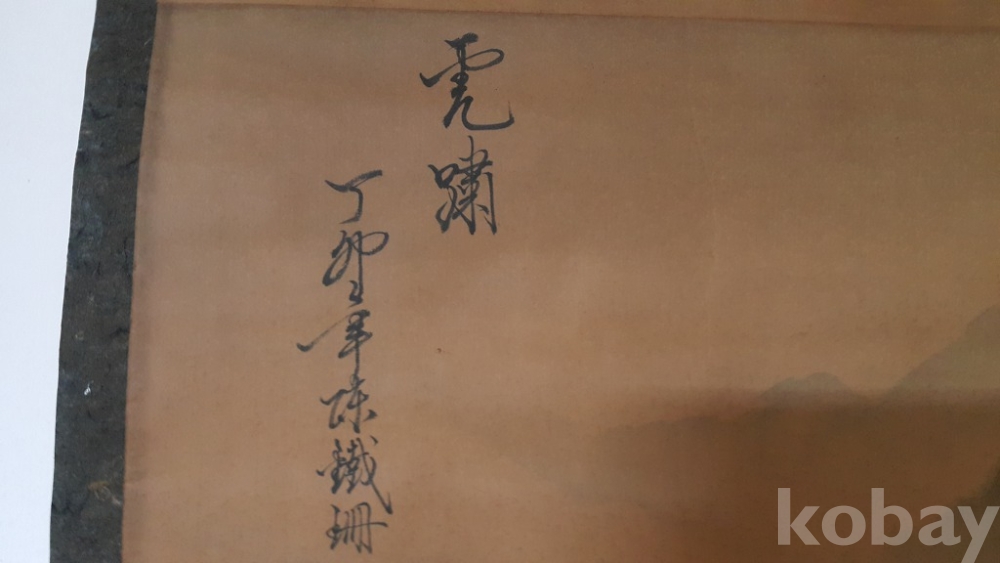 虎嘯
丁卯年味鐵珊
kobay